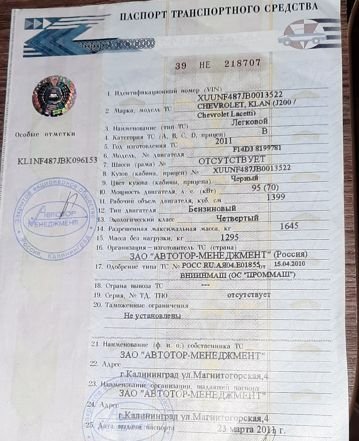 ПАСПОРТ ТРАНСПОРТНОГО СРЕДСТВА
39 НЕ 218707
1. Идентификационный номер (VIN) XUUNF487JB0013522
2. Марка, модель ТС CHEVROLET, KLAN (J200 / Chevrolet Lacetti)
3. Наименование (тип ТС) Легковой
4. Категория ТС (A, B, C, D, прицеп) B
5. Год изготовления ТС 2011
6. Модель, № двигателя F14D3 8199781
7. Шасси (рама) № ОТСУТСТВУЕТ
8. Кузов (кабина, прицеп) № XUUNF487JB0013522
9. Цвет кузова (кабины, прицепа) Черный
10. Мощность двигателя, л. с. (кВт) 95 (70)
11. Рабочий объем двигателя, куб. см 1399
12. Тип двигателя Бензиновый
13. Экологический класс Четвертый
14. Разрешенная максимальная масса, кг 1645
15. Масса без нагрузки, кг 1295
16. Организация - изготовитель ТС (страна)
ЗАО "АВТОТОР-МЕНЕДЖМЕНТ" (Россия)
17. Одобрение типа ТС № РОСС RU.АЯ04.Е01855 от 15.04.2010
ВНИИНМАШ (ОС "ПРОММАШ")
18. Страна вывоза ТС ---
19. Серия, № ТД, ТПО отсутствует
20. Таможенные ограничения
Не установлены
21. Наименование (ф. и. о.) собственника ТС
ЗАО "АВТОТОР-МЕНЕДЖМЕНТ"
22. Адрес
г.Калининград ул.Магнитогорская,4
23. Наименование организации, выдавшей паспорт
ЗАО "АВТОТОР-МЕНЕДЖМЕНТ"
24. Адрес
г.Калининград ул.Магнитогорская,4
25. Дата выдачи паспорта 23 марта 2011 г.
Особые отметки
KL1NF487JBK096153
АВТОТОР
МЕНЕДЖМЕНТ